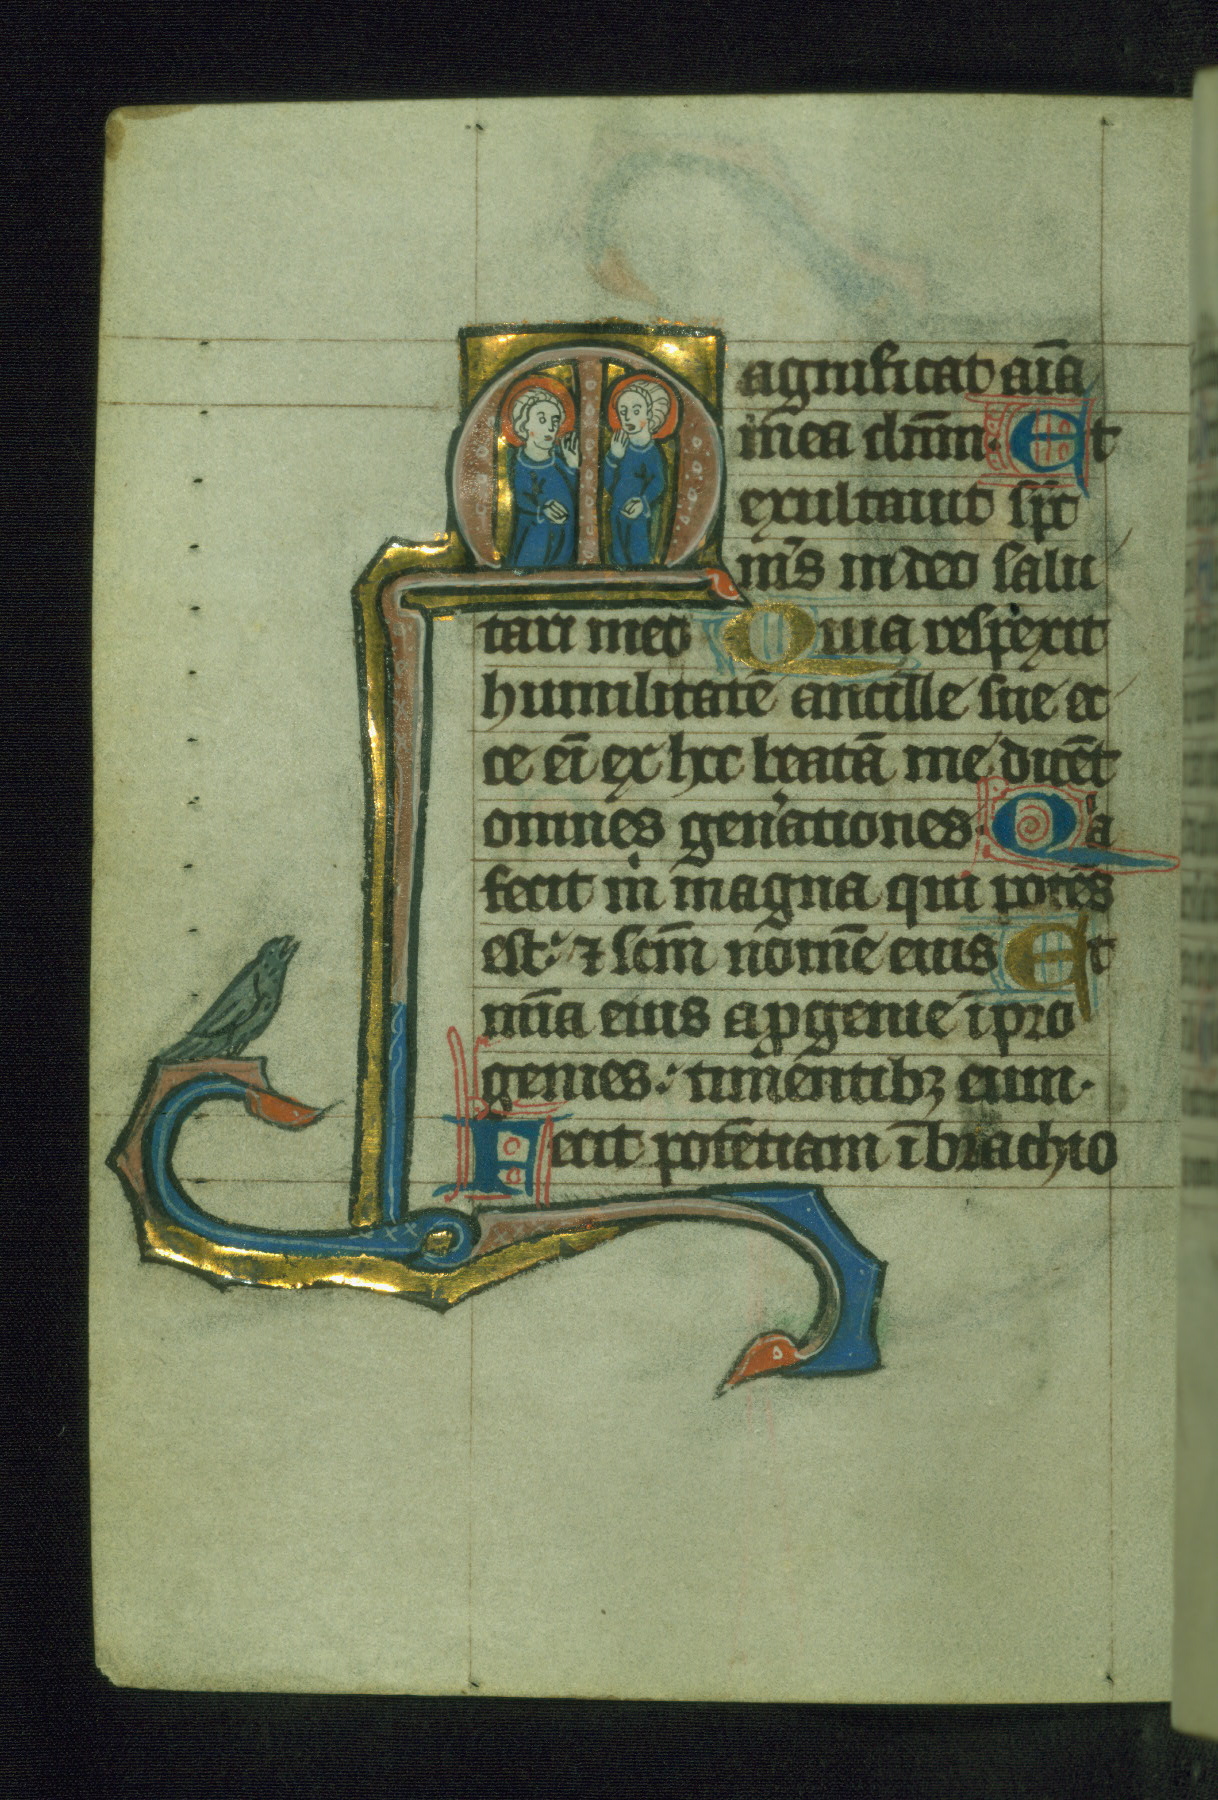 Magnificat aīa
mea dnm̄. Et
exultauit sp̄c
mˢs in deo salu
tari meo Quia respexit
humilitatē ancille sue ec
ce eī ex hec beatā me dicēt
omnes gen̾ationes. Qᵃa
fecit m̍ magna qui potēs
est: ⁊ scm̄ nomē eius Et
mīa eius a ꝓgenie ī pro
genies: timentibꝫ eum.
Fecit potētiam ī brachio